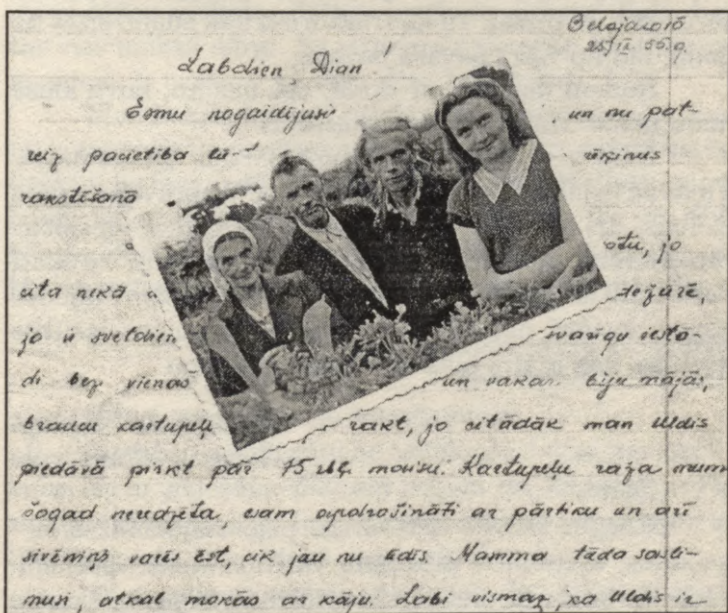 Labdien, Dian!
Esmu nogaidījusi un nu pat-
reiz pacietība
rakstīšanā
jo
cita nekā
jo ir svētdien svarīgu iestā-
di bez vienas un vakar biju mājās,
braucu kartupeļu rakt, jo citādāk man Uldis
piedāvā pirkt par 75 rbļ. maisu. Kartupeļu raža mums
šogad neredzēta, esam apdrošināti ar pārtiku un arī
sivēniņš varēs ēst, cik jau nu ēdīs. Mamma tāda sasli-
musi, atkal mokās ar kāju. Labi vismaz, ka Uldis ir